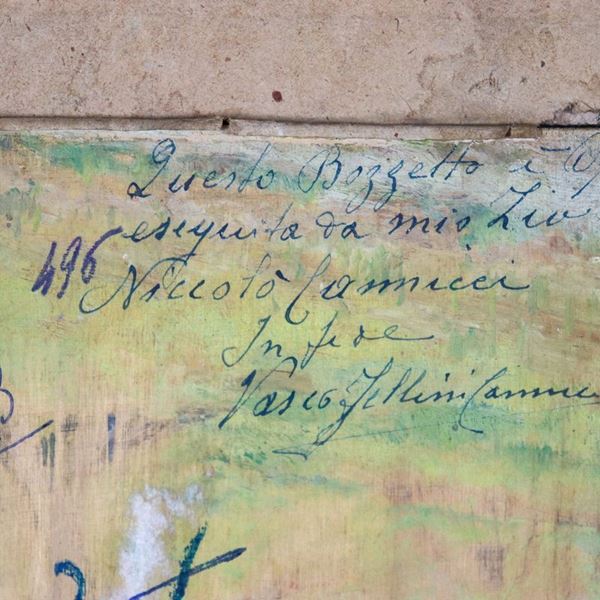 Questo Bozzetto è
eseguita da mio Zio
496
Niccolò Cannicci
In fede
Vasco Jellini Cannicc